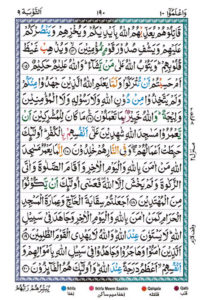 وَاعْلَمُوْۤا ١٠ ١٩٠ اَلتَّوْبَة ٩
قَاتِلُوْهُمْ يُعَذِّبْهُمُ اللّٰهُ بِاَيْدِيْكُمْ وَيُخْزِهِمْ وَيَنْصُرْكُمْ
عَلَيْهِمْ وَيَشْفِ صُدُوْرَ قَوْمٍ مُّؤْمِنِيْنَ وَيُذْهِبْ غَيْظَ
قُلُوْبِهِمْ وَيَتُوْبُ اللّٰهُ عَلٰى مَنْ يَّشَآءُ وَاللّٰهُ عَلِيْمٌ حَكِيْمٌ
اَمْ حَسِبْتُمْ اَنْ تُتْرَكُوْا وَلَمَّا يَعْلَمِ اللّٰهُ الَّذِيْنَ جٰهَدُوْا
مِنْكُمْ وَلَمْ يَتَّخِذُوْا مِنْ دُوْنِ اللّٰهِ وَلَا رَسُوْلِهٖ وَلَا الْمُؤْمِنِيْنَ
وَلِيْجَةً وَاللّٰهُ خَبِيْرٌۢ بِمَا تَعْمَلُوْنَ مَا كَانَ لِلْمُشْرِكِيْنَ اَنْ
يَّعْمُرُوْا مَسٰجِدَ اللّٰهِ شٰهِدِيْنَ عَلٰۤى اَنْفُسِهِمْ بِالْكُفْرِ اُولٰٓئِكَ
حَبِطَتْ اَعْمَالُهُمْ وَفِي النَّارِ هُمْ خٰلِدُوْنَ اِنَّمَا يَعْمُرُ
مَسٰجِدَ اللّٰهِ مَنْ اٰمَنَ بِاللّٰهِ وَالْيَوْمِ الْاٰخِرِ وَاَقَامَ الصَّلٰوةَ وَاٰتَى
الزَّكٰوةَ وَلَمْ يَخْشَ اِلَّا اللّٰهَ فَعَسٰۤى اُولٰٓئِكَ اَنْ يَّكُوْنُوْا
مِنَ الْمُهْتَدِيْنَ اَجَعَلْتُمْ سِقَايَةَ الْحَآجِّ وَعِمَارَةَ الْمَسْجِدِ
الْحَرَامِ كَمَنْ اٰمَنَ بِاللّٰهِ وَالْيَوْمِ الْاٰخِرِ وَجَاهَدَ فِيْ سَبِيْلِ
اللّٰهِ لَا يَسْتَوٗنَ عِنْدَ اللّٰهِ وَاللّٰهُ لَا يَهْدِي الْقَوْمَ الظّٰلِمِيْنَ
اَلَّذِيْنَ اٰمَنُوْا وَهَاجَرُوْا وَجَاهَدُوْا فِيْ سَبِيْلِ اللّٰهِ بِاَمْوَالِهِمْ وَ
اَنْفُسِهِمْ اَعْظَمُ دَرَجَةً عِنْدَ اللّٰهِ وَاُولٰٓئِكَ هُمُ الْفَآئِزُوْنَ